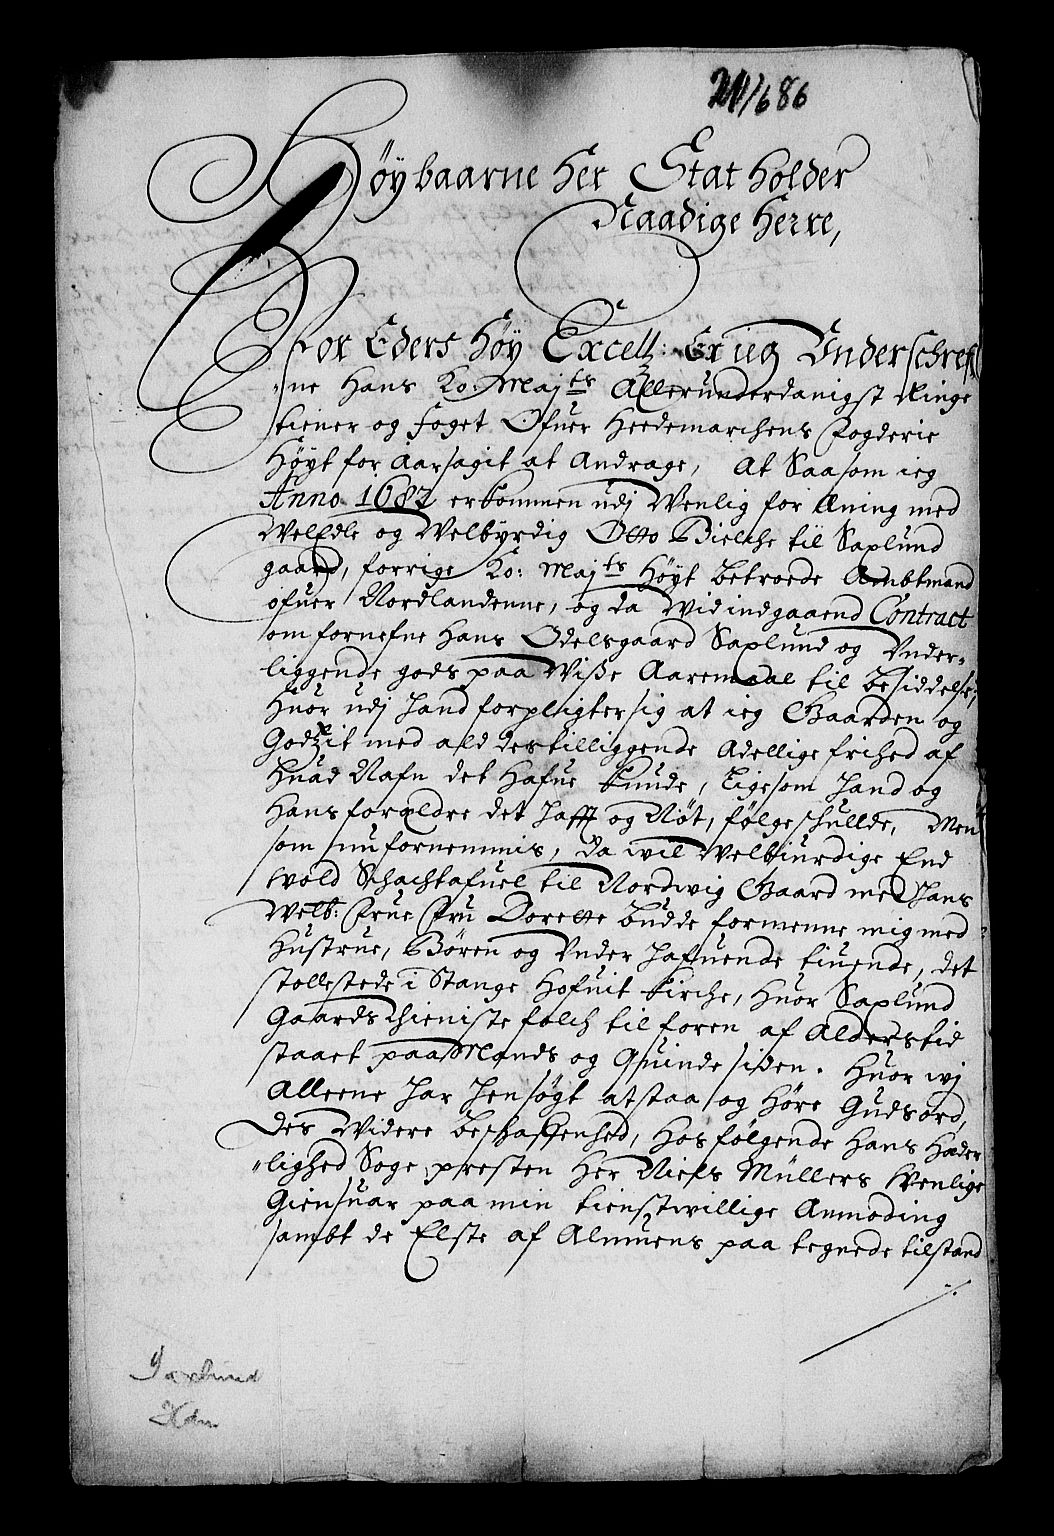 1686
Høybaarne Her Stat holder
Naadige Herre,
For Eders Høy Excell: Er ieg Underschref
ne Hans Ko: Majts Allerunderdanigst Ringe
tiener og foget Ofuer Heedemarchens Fogderie
Høyt for Aarsagit at Andrage, At Saasom ieg
Anno 1682 erkommen udj Venlig for Æning med
WelEdle og Welbyrdig Otto Bielche til Saxlund
gaard, forrige Ko: Majts Høyt betroede Ambtmand
ofuer Nordlandenne, og da Wid indgaaend Contract
om fornefne Hans Odelsgaard Saxlund og Vnder-
liggende gods paa Wiße Aaremaal til besiddelse,
Huor udj hand forpligter sig at ieg Gaarden og
Godzit med ald des tilliggende Adellige frihed af
huad Nafn det Hafue kunde, ligesom hand og
Hans forældre det hafft og Nøt, følge schullde, Men
som nu fornemmis, da wil Welbiurdige End
wold Schachtafuel til Nordwig Gaard med hans
Welb: Frue Fru Dorette Budde formenne mig med
Hustrue, Børen og Vnder hafuende tiuende, det
stollestede i Stange Hofuit Kirche, Huor Saxlund
Gaards thieniste folch til foren af Alders tid
staaet paa Mands og Quinde siden. Huor wj
Alleene har hensøgt at staa og Høre Guds ord,
Des Widere beschaffenhed, Hosfølgende Hans Hæder
lighed Sogepresten Her Niels Müllers Wenlige
Giensuar paa min tienstwillige Anmoding
sambt de Elste af Almuens paa tegnede tilstand
Saxlund
Hdm